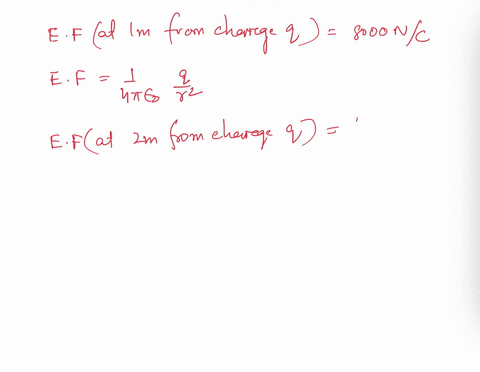 E.F (at 1m from charege q) = 8000 N/C
E.F = 1/4πϵ0 q/r²
E.F (at 2m from charege q) = '